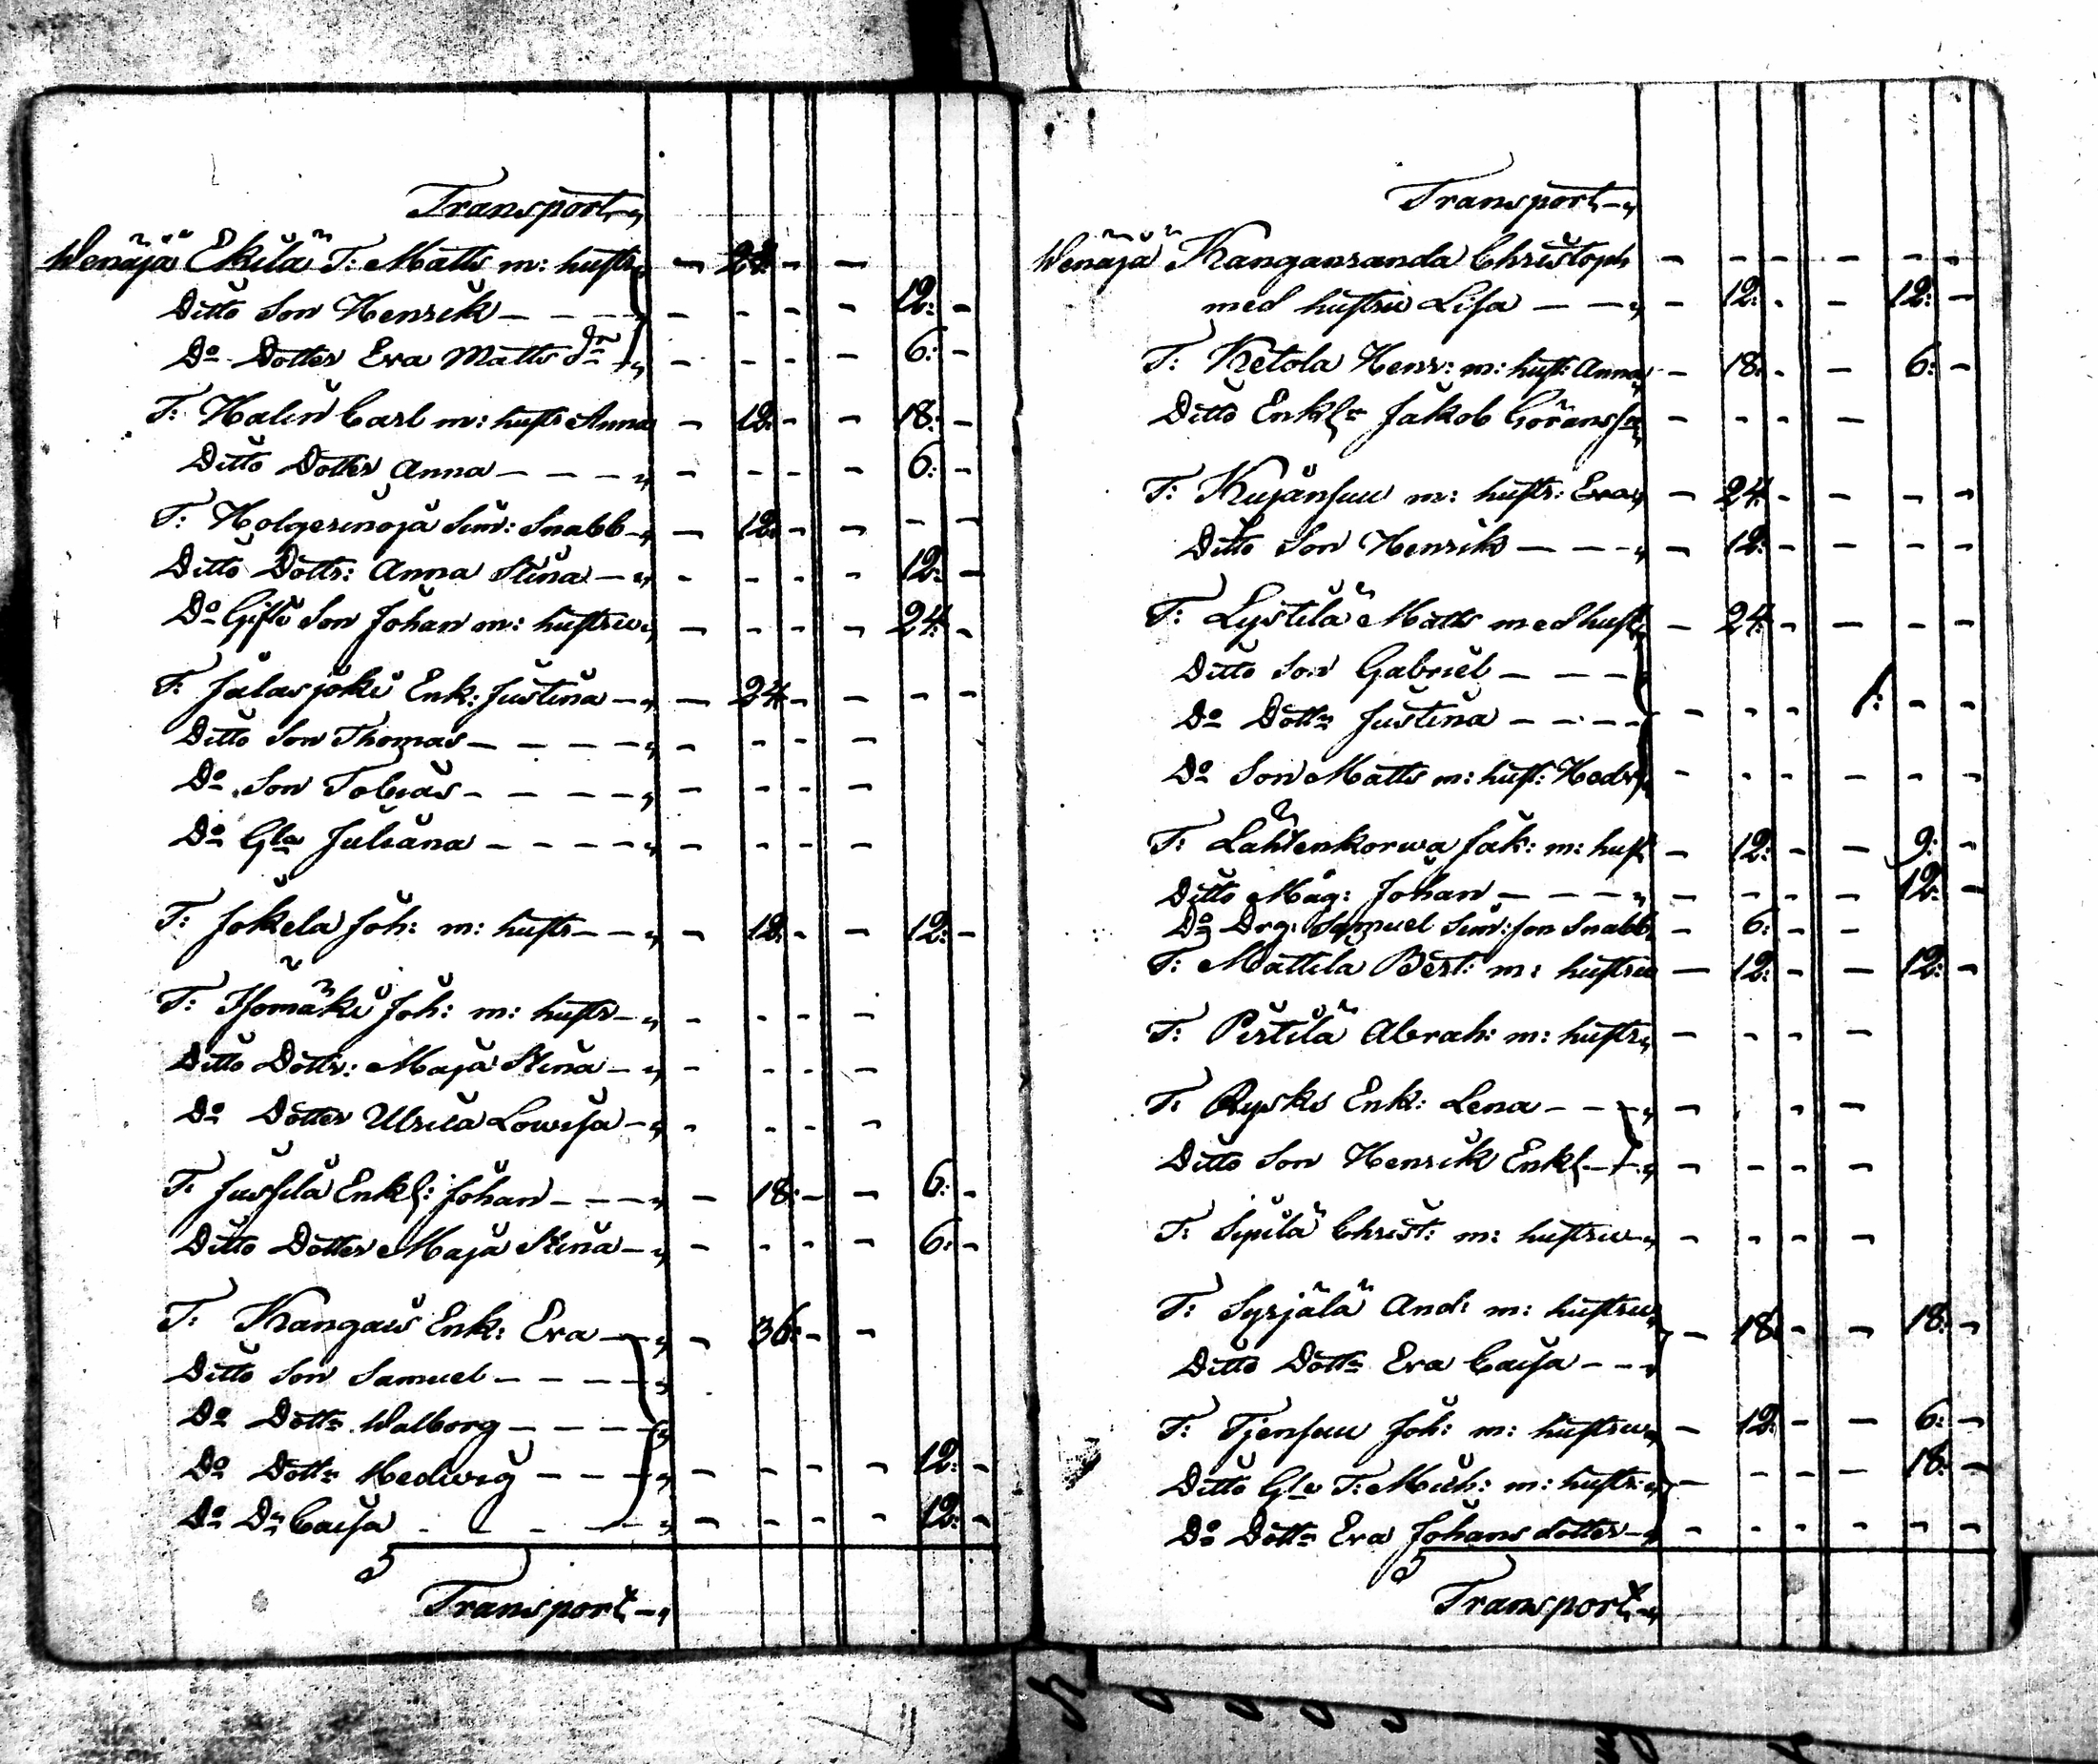 Transport
Wenäjä Ekilä T: Matts m: hustr – 24: – –
Ditto Son Henrik – – – – – – – – 12: –
Do Dotter Eva Matts dr – – – – 6: –
T: Halin Carl m: hustr Anna – 12: – – 18: –
Ditto Dotter Anna – – – – – – – 6: –
T: Holgerinoja Sim: Snabb – – 12: – – – –
Ditto Dottr: Anna Stina – – – – – 12: –
Do Gifte Son Johan m: hustru – – – – 24: –
T: Jalasjoki Enk: Justina – – 24 – – – –
Ditto Son Thomas – – – – – – – –
Do Son Tobias – – – – – – – –
Do Gla Juliana – – – – – – – –
T: Jokela Joh: m: hustr – – – – 12: – – 12: –
T: Isomäki Joh: m: hustr – – – – –
Ditto Dottr: Maja Stina – – – – –
Do Dotter Ulrica Lowisa – – – – –
T: Jussila Enkl: Johan – – – – 18: – – 6: –
Ditto Dotter Maja Stina – – – – – 6: –
T: Kangas Enk: Eva – – 36: – –
Ditto Son Samuel – – – –
Do Dottr Walborg – – – –
Do Dottr Hedwig – – – – – – – 12: –
Do Dr Caisa – – – – – – – – 12: –
Transport
Transport
Wenäjä Kanganranda Christoph – – – – – –
med hustru Lisa – – – 12: – – 12: –
T: Ketola Henr: m: hust: Anna – 18: – – 6: –
Ditto Enkl Jakob Göransson – – – –
T: Kujansuu m: hustr: Eva – 24 – – – –
Ditto Son Henrik – – – – 12: – – – –
T: Lystilä Matts med hust – 24 – – – –
Ditto Son Gabriel – – –
Do Dottr Justina – – – – – – – 1: – –
Do Son Matts m: hust: Hedv – – – – – –
T: Lahdenkorwa Jak: m: hust – 12: – – 9: –
Ditto Måg: Johan – – – – – – – – 12: –
Do Drg: Samuel Sim:son Snabb – 6: – –
T: Mattila Bert: m: hustru – 12: – – 12: –
T: Pertilä Abrah: m: hustr – – – –
T: Rysks Enk: Lena – – – – –
Ditto Son Henrik Enkl – – – – –
T: Sipilä Christ: m: hustru – – – –
T: Syrjälä And: m: hustru – 18 – – 18: –
Ditto Dottr Eva Caisa – –
T: Tjensuu Joh: m: hustru – 12: – – 6: –
Ditto Gle T: Mich: m: hustr: – – – – 18: –
Do Dottr Eva Johans dotter – – – – – – –
Transport